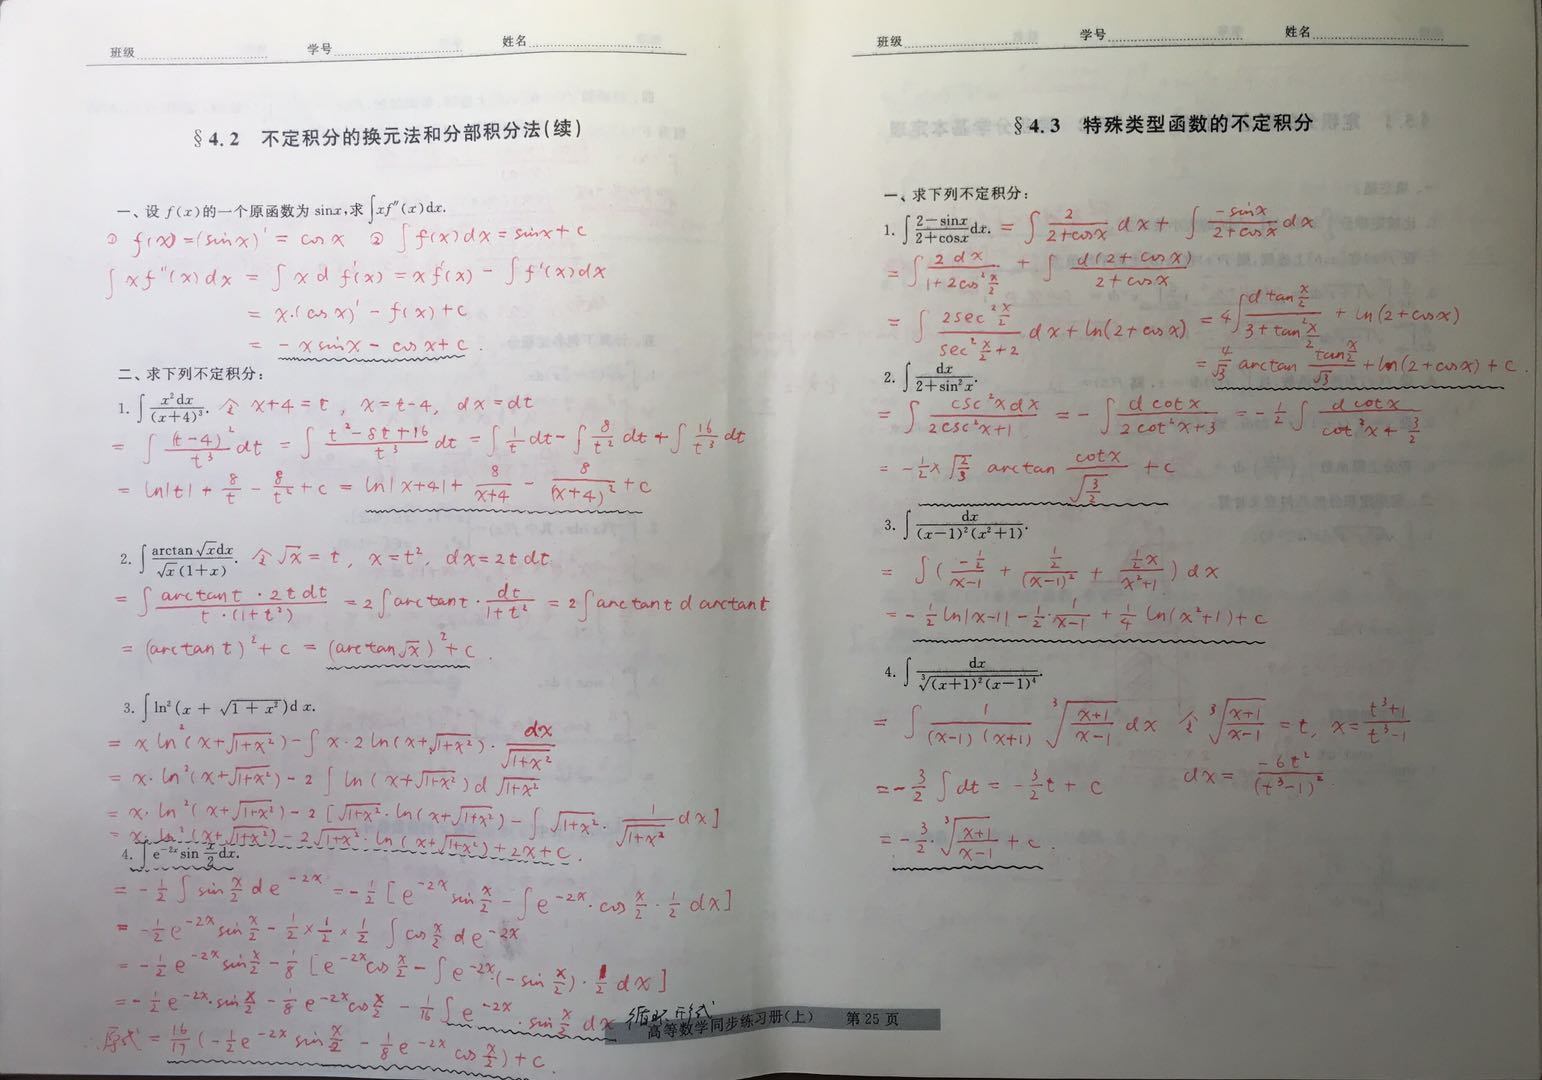 班级 学号 姓名
§4.2 不定积分的换元法和分部积分法(续)
一、设 f(x)的一个原函数为 sinx,求∫xf″(x)dx.
① f(x)=(sinx)′ = cosx ② ∫f(x)dx = sinx+c
∫xf″(x)dx = ∫x d f′(x) = x f′(x) - ∫f′(x)dx
= x·(cosx)′ - f(x)+c
= -x sinx - cosx+c.
二、求下列不定积分:
1. ∫x²dx/(x+4)³. 令 x+4=t, x=t-4, dx=dt
= ∫(t-4)²/t³ dt = ∫(t²-8t+16)/t³ dt = ∫1/t dt - ∫8/t² dt + ∫16/t³ dt
= ln|t| + 8/t - 8/t² + c = ln|x+4| + 8/(x+4) - 8/(x+4)² + c
2. ∫arctan√x dx/(√x(1+x)). 令√x=t, x=t², dx=2tdt
= ∫(arctant·2tdt)/(t·(1+t²)) = 2∫arctant·dt/(1+t²) = 2∫arctant d arctant
= (arctant)²+c = (arctan√x)²+c.
3. ∫ln²(x + √(1+x²))dx.
= x ln²(x+√(1+x²)) - ∫x·2ln(x+√(1+x²))·dx/√(1+x²)
= x·ln²(x+√(1+x²)) - 2∫ln(x+√(1+x²))d√(1+x²)
= x·ln²(x+√(1+x²)) - 2[√(1+x²)·ln(x+√(1+x²)) - ∫√(1+x²)·1/√(1+x²) dx]
= x·ln²(x+√(1+x²)) - 2√(1+x²)·ln(x+√(1+x²)) + 2x + c.
4. ∫e^(-2x) sin(x/2) dx.
= -1/2∫sin(x/2) de^(-2x) = -1/2[e^(-2x) sin(x/2) - ∫e^(-2x)·cos(x/2)·1/2 dx]
= -1/2 e^(-2x) sin(x/2) - 1/2×1/2×1/2∫cos(x/2) de^(-2x)
= -1/2 e^(-2x) sin(x/2) - 1/8[e^(-2x) cos(x/2) - ∫e^(-2x)·(-sin(x/2))·1/2 dx]
= -1/2 e^(-2x)·sin(x/2) - 1/8 e^(-2x) cos(x/2) - 1/16∫e^(-2x)·sin(x/2) dx 循环形式
∴原式 = 16/17(-1/2 e^(-2x) sin(x/2) - 1/8 e^(-2x) cos(x/2)) + c.
高等数学同步练习册(上) 第25页
班级 学号 姓名
§4.3 特殊类型函数的不定积分
一、求下列不定积分:
1. ∫(2-sinx)/(2+cosx)dx. = ∫2/(2+cosx) dx + ∫-sinx/(2+cosx) dx
= ∫2dx/(1+2cos²(x/2)) + ∫d(2+cosx)/(2+cosx)
= ∫2sec²(x/2)/(sec²(x/2)+2) dx + ln(2+cosx) = 4∫d tan(x/2)/(3+tan²(x/2)) + ln(2+cosx)
= 4/√3 arctan (tan(x/2)/√3) + ln(2+cosx) + c.
2. ∫dx/(2+sin²x).
= ∫csc²xdx/(2csc²x+1) = -∫d cotx/(2cot²x+3) = -1/2∫d cotx/(cot²x+3/2)
= -1/2×√(2/3) arctan (cotx/√(3/2)) + c
3. ∫dx/((x-1)²(x²+1)).
= ∫((-1/2)/(x-1) + (1/2)/(x-1)² + (1/2 x)/(x²+1))dx
= -1/2 ln|x-1| - 1/2·1/(x-1) + 1/4 ln(x²+1) + c
4. ∫dx/∛((x+1)²(x-1)⁴).
= ∫1/((x-1)(x+1)) ∛((x+1)/(x-1)) dx 令∛((x+1)/(x-1)) = t, x = (t³+1)/(t³-1)
= -3/2∫dt = -3/2 t + c dx = -6t²/(t³-1)².
= -3/2·∛((x+1)/(x-1)) + c.